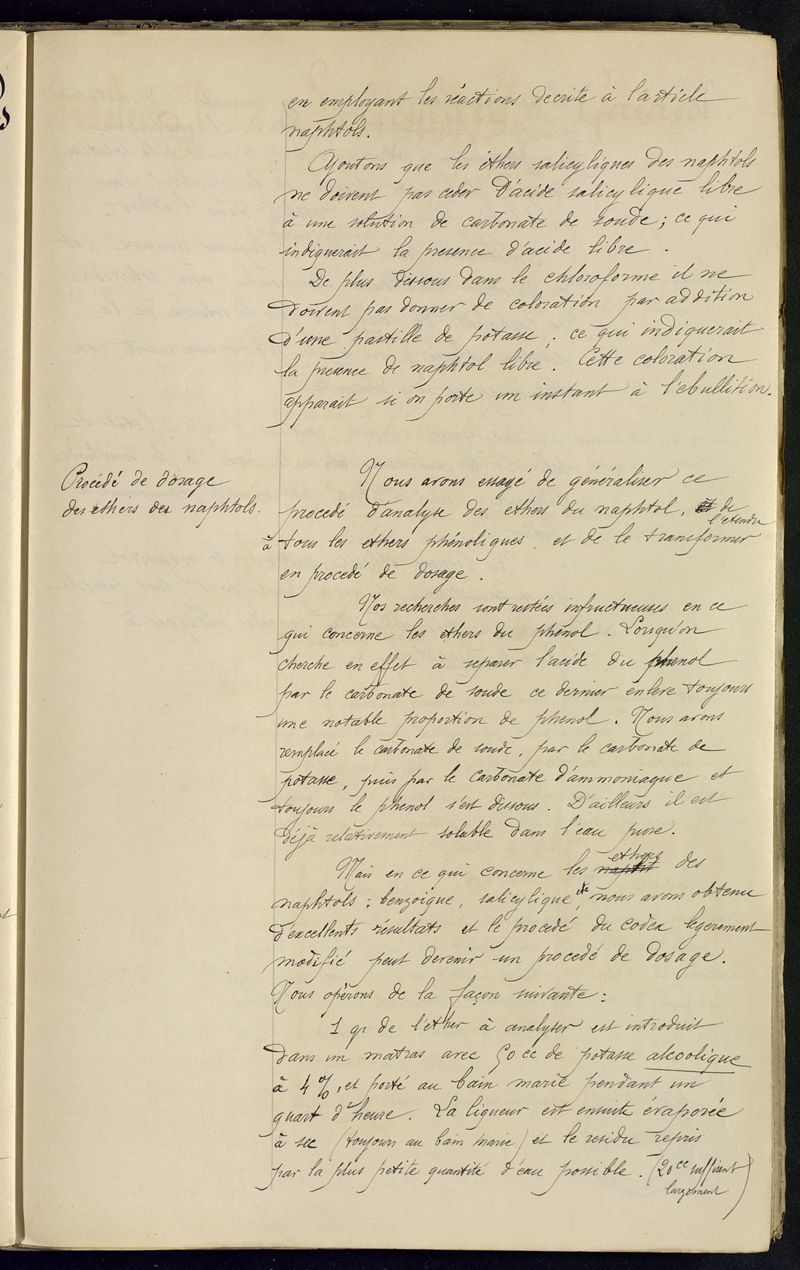 en employant les réactions decrite à l'article
naphtols.
Ajoutons que les éthers salicyliques des naphtols
ne doivent pas ceder d'acide salicylique libre
à une solution de carbonate de soude ; ce qui
indiquerait la presence d'acide libre .
De plus dissous dans le chloroforme il ne
doivent pas donner de coloration par addition
d'une pastille de potasse , ce qui indiquerait
la presence de naphtol libre . Cette coloration
apparait si on porte un instant à l'ebullition.
Procédé de dosage
des ethers des naphtols.
Nous avons essayé de généraliser ce
procedé d'analyse des ethers du naphtol, et de
l'etendre
à tous les ethers phénoliques, et de le transformer
en procedé de dosage .
Nos recherches sont restées infructueuses en ce
qui concerne les ethers du phenol . Lorsqu'on
cherche en effet à separer l'acide du phenol
par le carbonate de soude ce dernier enleve toujours
une notable proportion de phenol . Nous avons
remplacé le carbonate de soude, par le carbonate de
potasse, puis par le carbonate d'ammoniaque et
toujours le phenol s'est dissous . D'ailleurs il est
déjà relativement soluble dans l'eau pure .
Mais en ce qui concerne les ethers des
naphtols : benzoique, salicylique, etc nous avons obtenu
d'excellents résultats et le procedé du codex legerement
modifié peut devenir un procedé de dosage .
Nous opérons de la façon suivante :
1 gr de l'ether à analyser est introduit
dans un matras avec 50 cc de potasse alcoolique
à 4 %, et porté au bain marie pendant un
quart d'heure . La liqueur est ensuite évaporée
à sec (toujours au bain marie) et le residu repris
par la plus petite quantité d'eau possible . (20 cc suffisent
largement)